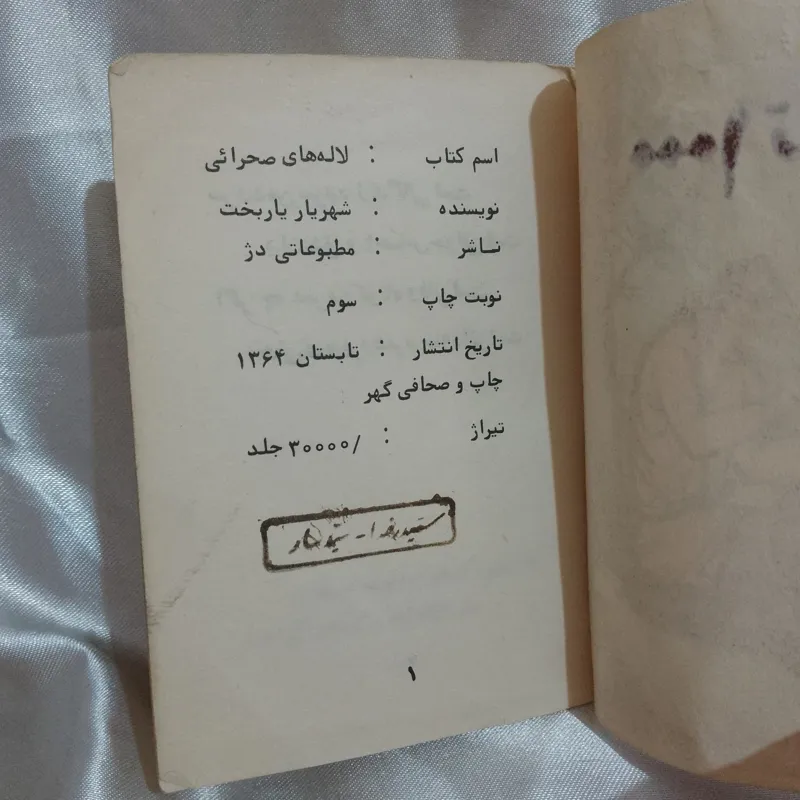 اسم کتاب : لاله‌های صحرائی
نویسنده : شهریار یاربخت
ناشر : مطبوعاتی دژ
نوبت چاپ : سوم
تاریخ انتشار : تابستان ۱۳۶۴
چاپ و صحافی گهر
تیراژ : /۳۰۰۰۰ جلد
۱